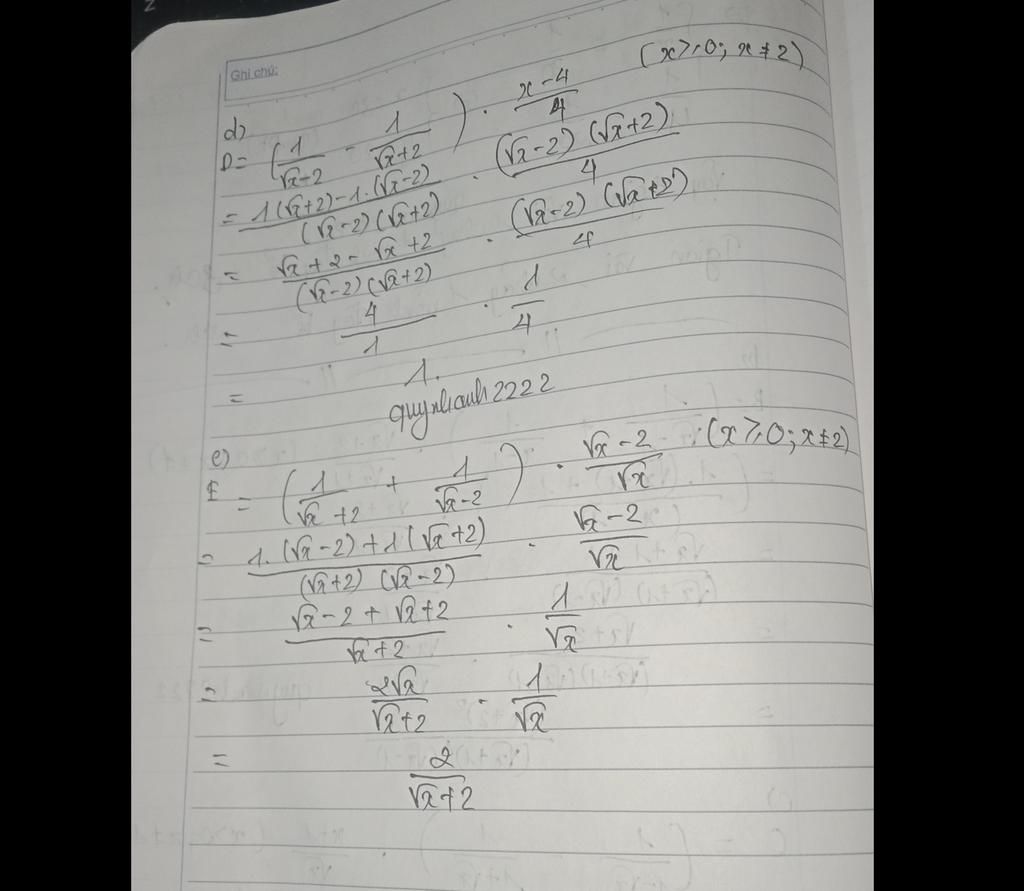 Ghi chú:
d)
D = (1/(√x-2) - 1/(√x+2)) . (x-4)/4 (x ≥ 0; x ≠ 2)
= (1(√x+2) - 1.(√x-2))/((√x-2)(√x+2)) . ((√x-2)(√x+2))/4
= (√x+2-√x+2)/((√x-2)(√x+2)) . ((√x-2)(√x+2))/4
= 4/1 . 1/4
= 1.
quynhanh2222
e)
E = (1/(√x+2) + 1/(√x-2)) . (√x-2)/√x (x ≥ 0; x ≠ 2)
= (1.(√x-2)+1(√x+2))/((√x+2)(√x-2)) . (√x-2)/√x
= (√x-2+√x+2)/(√x+2) . 1/√x
= 2√x/(√x+2) . 1/√x
= 2/(√x+2)